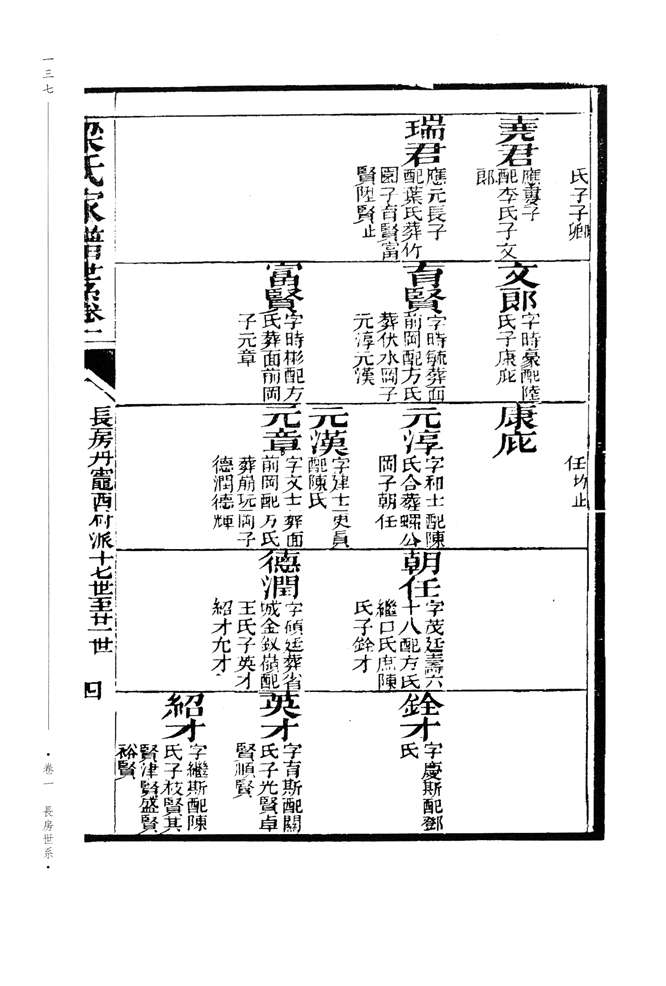 一三七
氏子子卿
堯君
應夔子
配李氏子文
郎
瑞君
應元長子
配葉氏葬竹
園子育賢富
賢陞賢止
文郎
字時豪配陸
氏子康庇
育賢
字時毓葬面
前岡配方氏
葬伏水岡子
元淳元漢
富賢
字時彬配方
氏葬面前岡
子元章
任均止
康庇
元淳
字和士配陳
氏合葬螺公
岡子朝任
元漢
字建士吏員
配陳氏
元章
字文士葬面
前岡配方氏
葬崩坑岡子
德潤德輝
朝任
字茂廷壽六
十八配方氏
繼口氏庶陳
氏子銓才
德潤
字碩廷葬省
城金釵嶺配
王氏子英才
紹才允才
銓才
字慶斯配鄧
氏
英才
字育斯配關
氏子光賢卓
賢順賢
紹才
字繼斯配陳
氏子枝賢其
賢津賢盛賢
裕賢
梁氏家譜世系卷一
長房丹竈西村派十七世至廿一世
四
·卷一 長房世系·